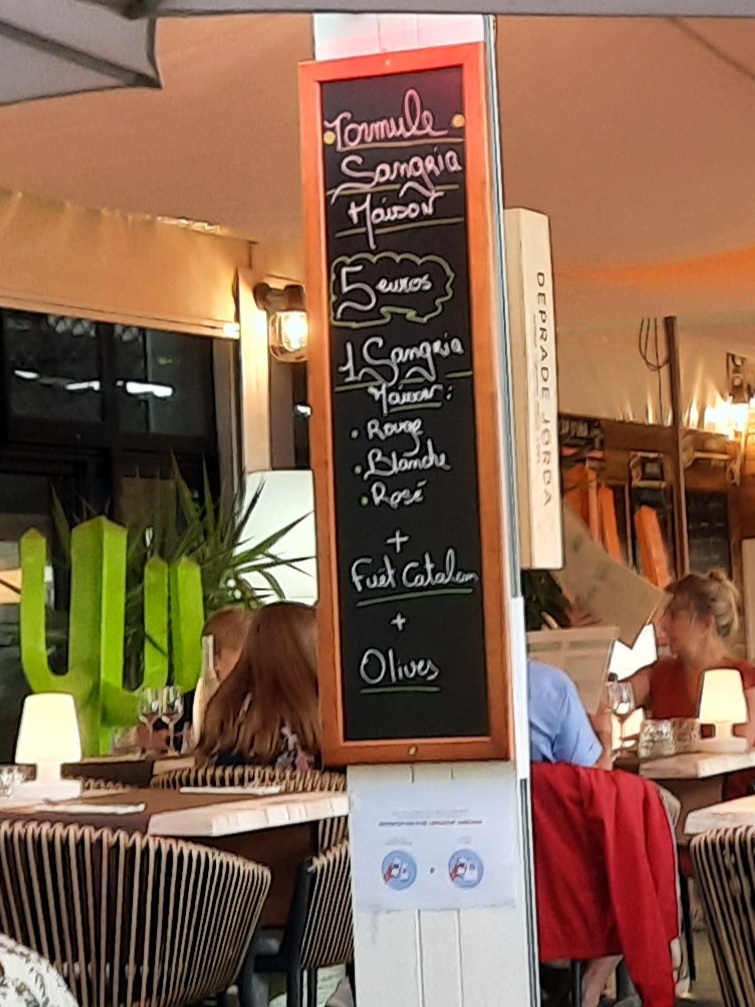 Formule
Sangria
Maison
5 euros
1 Sangria
Maison :
• Rouge
• Blanche
• Rosé
+
Fuet Catalan
+
Olives
DEPRADE JORDA